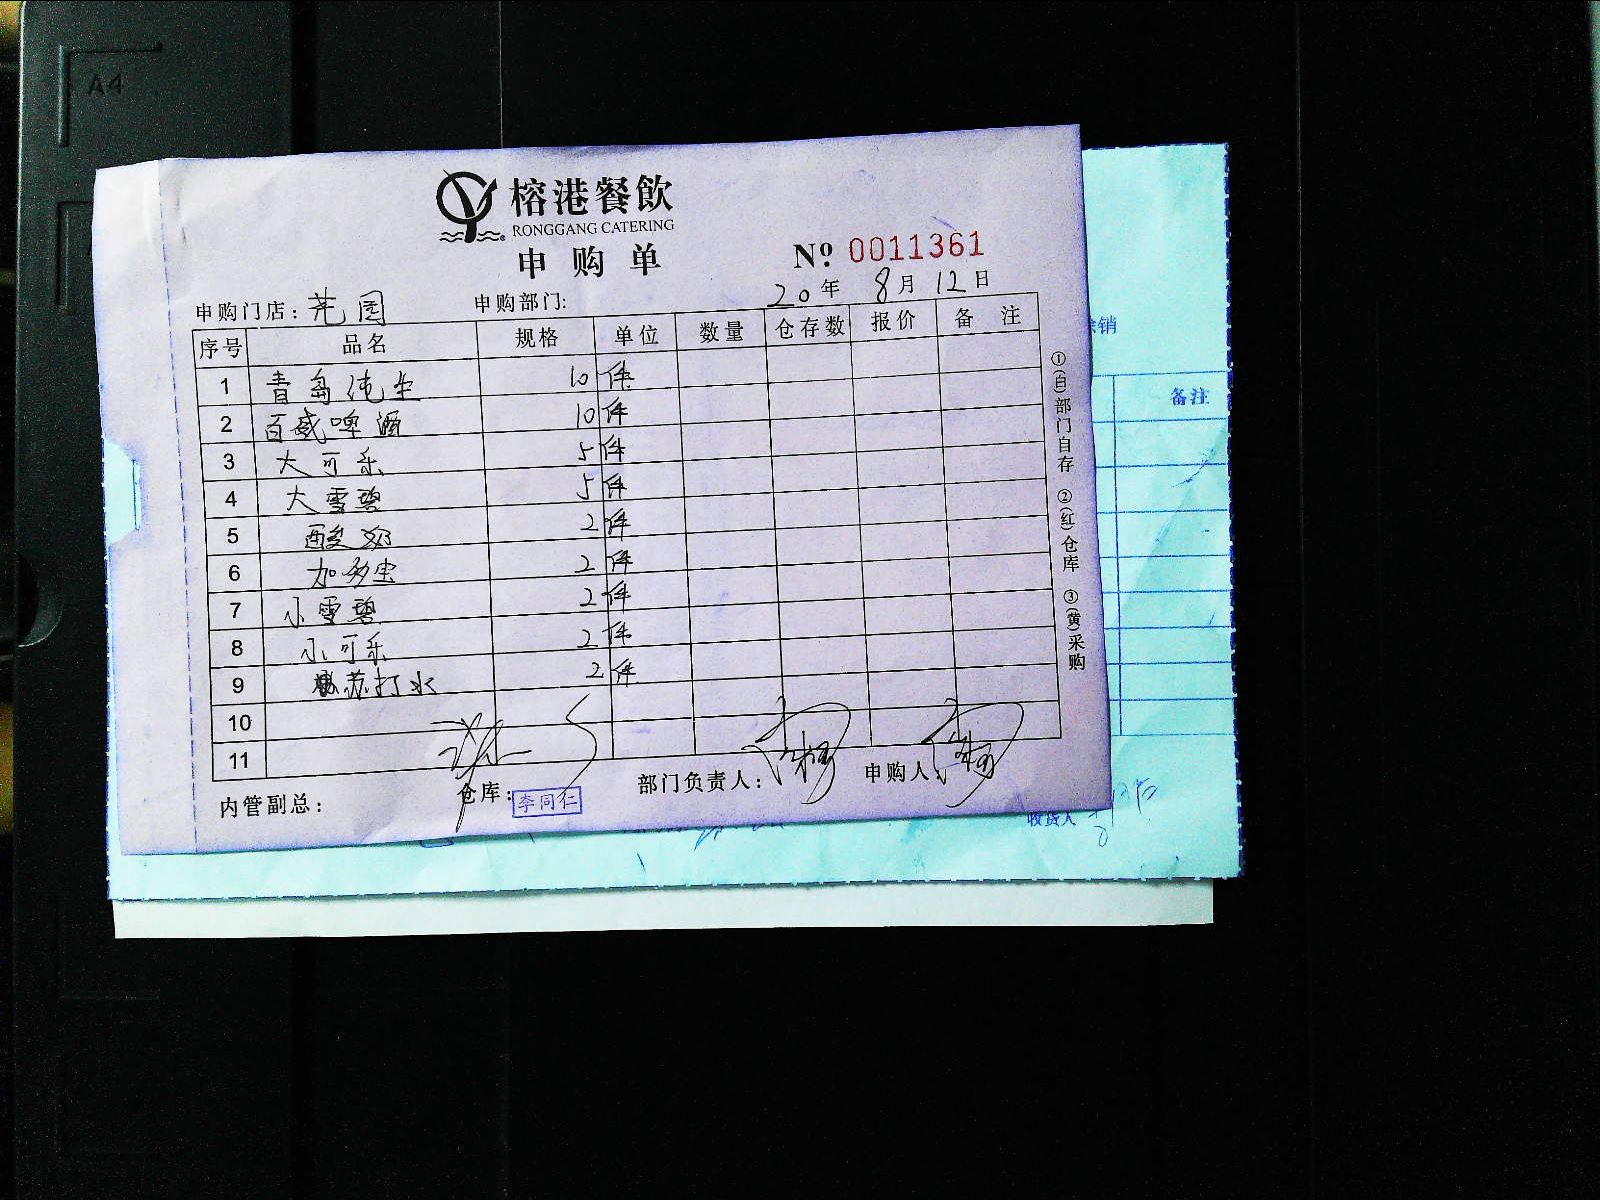 A4
榕港餐飲
RONGGANG CATERING
申购单
№ 0011361
20年 8月 12日
申购门店： 园 申购部门:
序号 品名 规格 单位 数量 仓存数 报价 备注
1 青岛纯生 10 件
2 百威啤酒 10 件
3 大可乐 5 件
4 大雪碧 5 件
5 酸奶 2 件
6 加多宝 2 件
7 小雪碧 2 件
8 小可乐 2 件
9 苏打水 2 件
10
11
内管副总： 仓库： 李同仁 部门负责人： 申购人：
①(白)部门自存 ②(红)仓库 ③(黄)采购
销
备注
收货人